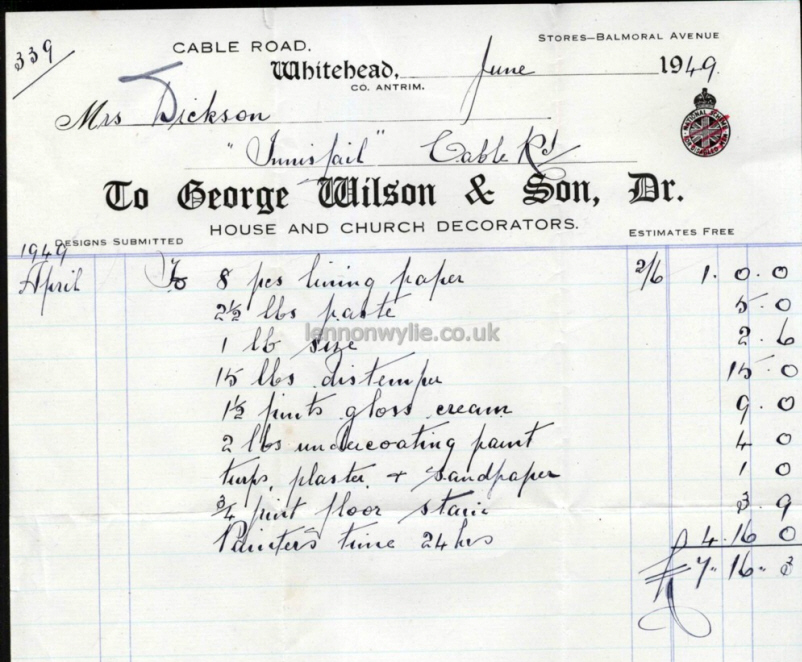 339
CABLE ROAD.
STORES—BALMORAL AVENUE
Whitehead, June 1949.
CO. ANTRIM.
Mrs Dickson
"Innisfail" Cable Rd
NATIONAL SCHEME
To George Wilson & Son, Dr.
HOUSE AND CHURCH DECORATORS.
DESIGNS SUBMITTED
ESTIMATES FREE
1949
April To 8 pcs lining paper 2/6 1. 0. 0
2½ lbs paste 5. 0
lennonwylie.co.uk
1 lb size 2. 6
15 lbs distemper 15. 0
1½ pints gloss cream 9. 0
2 lbs undercoating paint 4. 0
turps, plaster, + sandpaper 1. 0
¾ pint floor stain 3. 9
Painter's time 24 hrs 4. 16. 0
£ 7. 16. 3